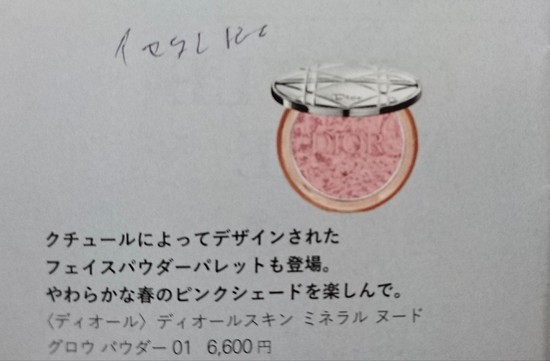 Dior
DIOR
クチュールによってデザインされた
フェイスパウダーパレットも登場。
やわらかな春のピンクシェードを楽しんで。
〈ディオール〉ディオールスキン ミネラル ヌード
グロウ パウダー 01 6,600円